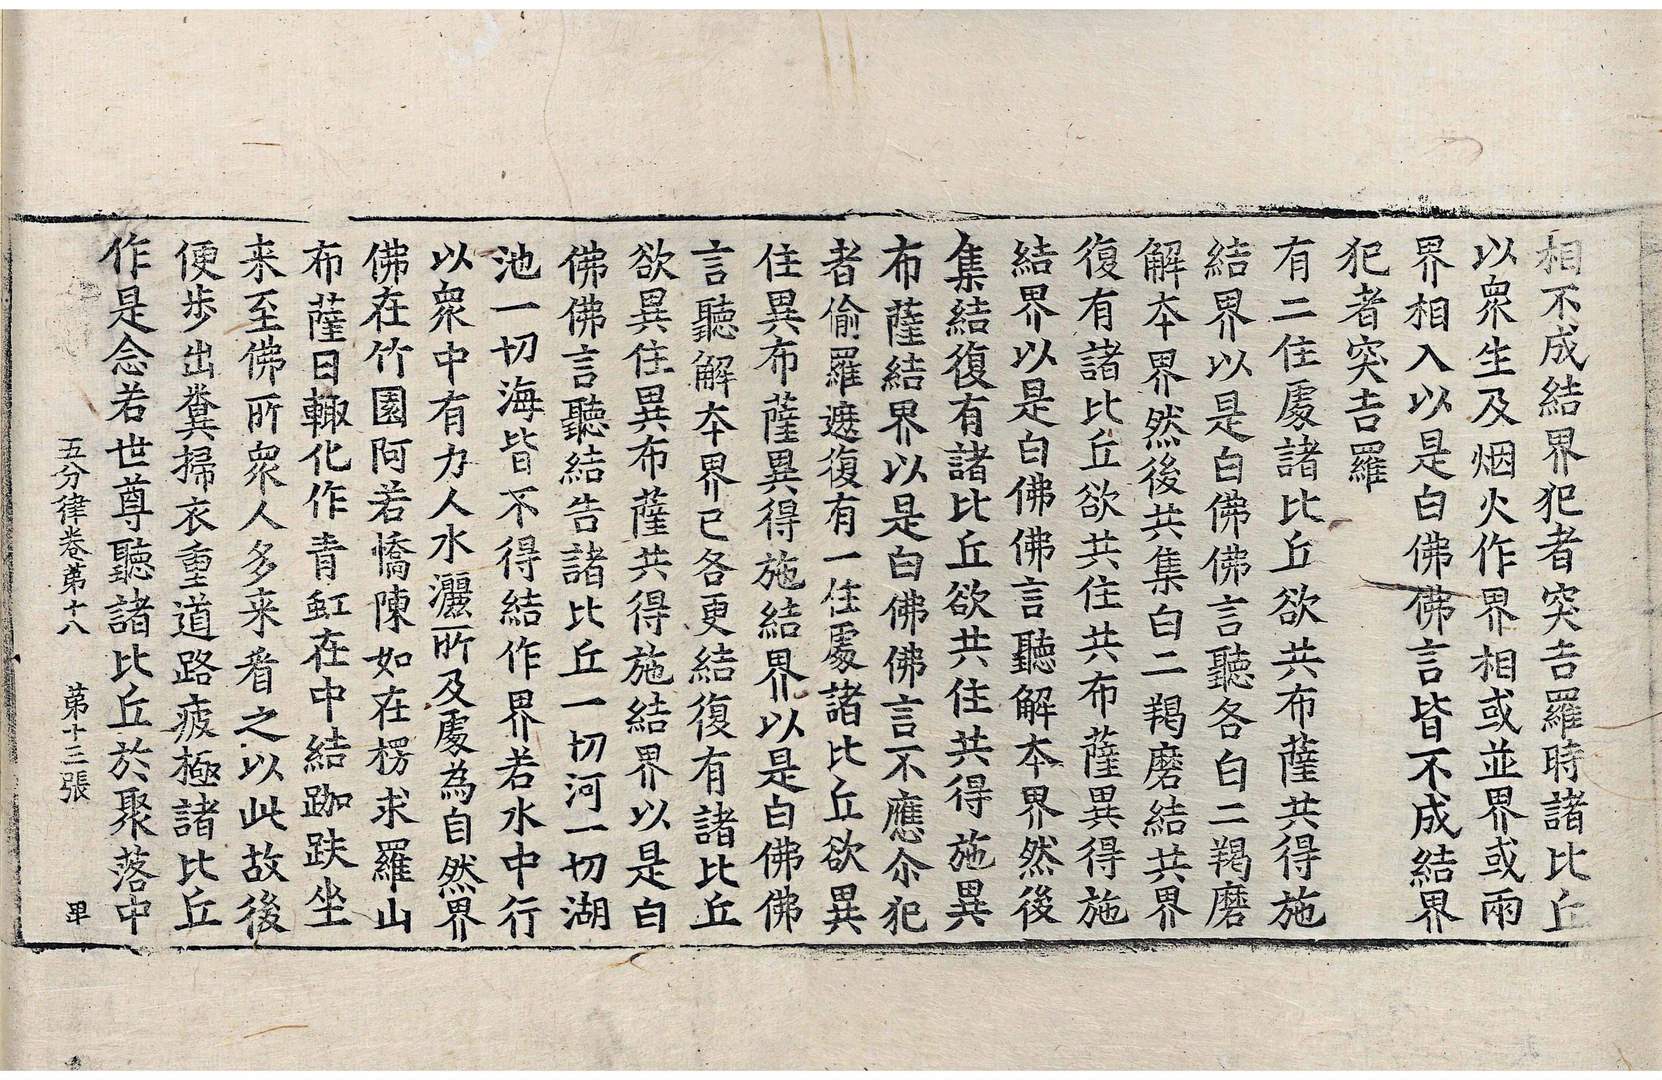 相不成結界犯者突吉羅時諸比丘
以衆生及烟火作界相或並界或兩
界相入以是白佛佛言皆不成結界
犯者突吉羅
有二住處諸比丘欲共布薩共得施
結界以是白佛佛言聽各白二羯磨
解本界然後共集白二羯磨結共界
復有諸比丘欲共住共布薩異得施
結界以是白佛佛言聽解本界然後
集結復有諸比丘欲共住共得施異
布薩結界以是白佛佛言不應尒犯
者偷羅遮復有一住處諸比丘欲異
住異布薩異得施結界以是白佛佛
言聽解本界已各更結復有諸比丘
欲異住異布薩共得施結界以是白
佛佛言聽結告諸比丘一切河一切湖
池一切海皆不得結作界若水中行
以衆中有力人水灑所及處為自然界
佛在竹園阿若憍陳如在楞求羅山
布薩日輙化作青虹在中結跏趺坐
来至佛所衆人多来看之以此故後
便步出糞掃衣重道路疲極諸比丘
作是念若世尊聽諸比丘於聚落中
五分律卷第十八 第十三張